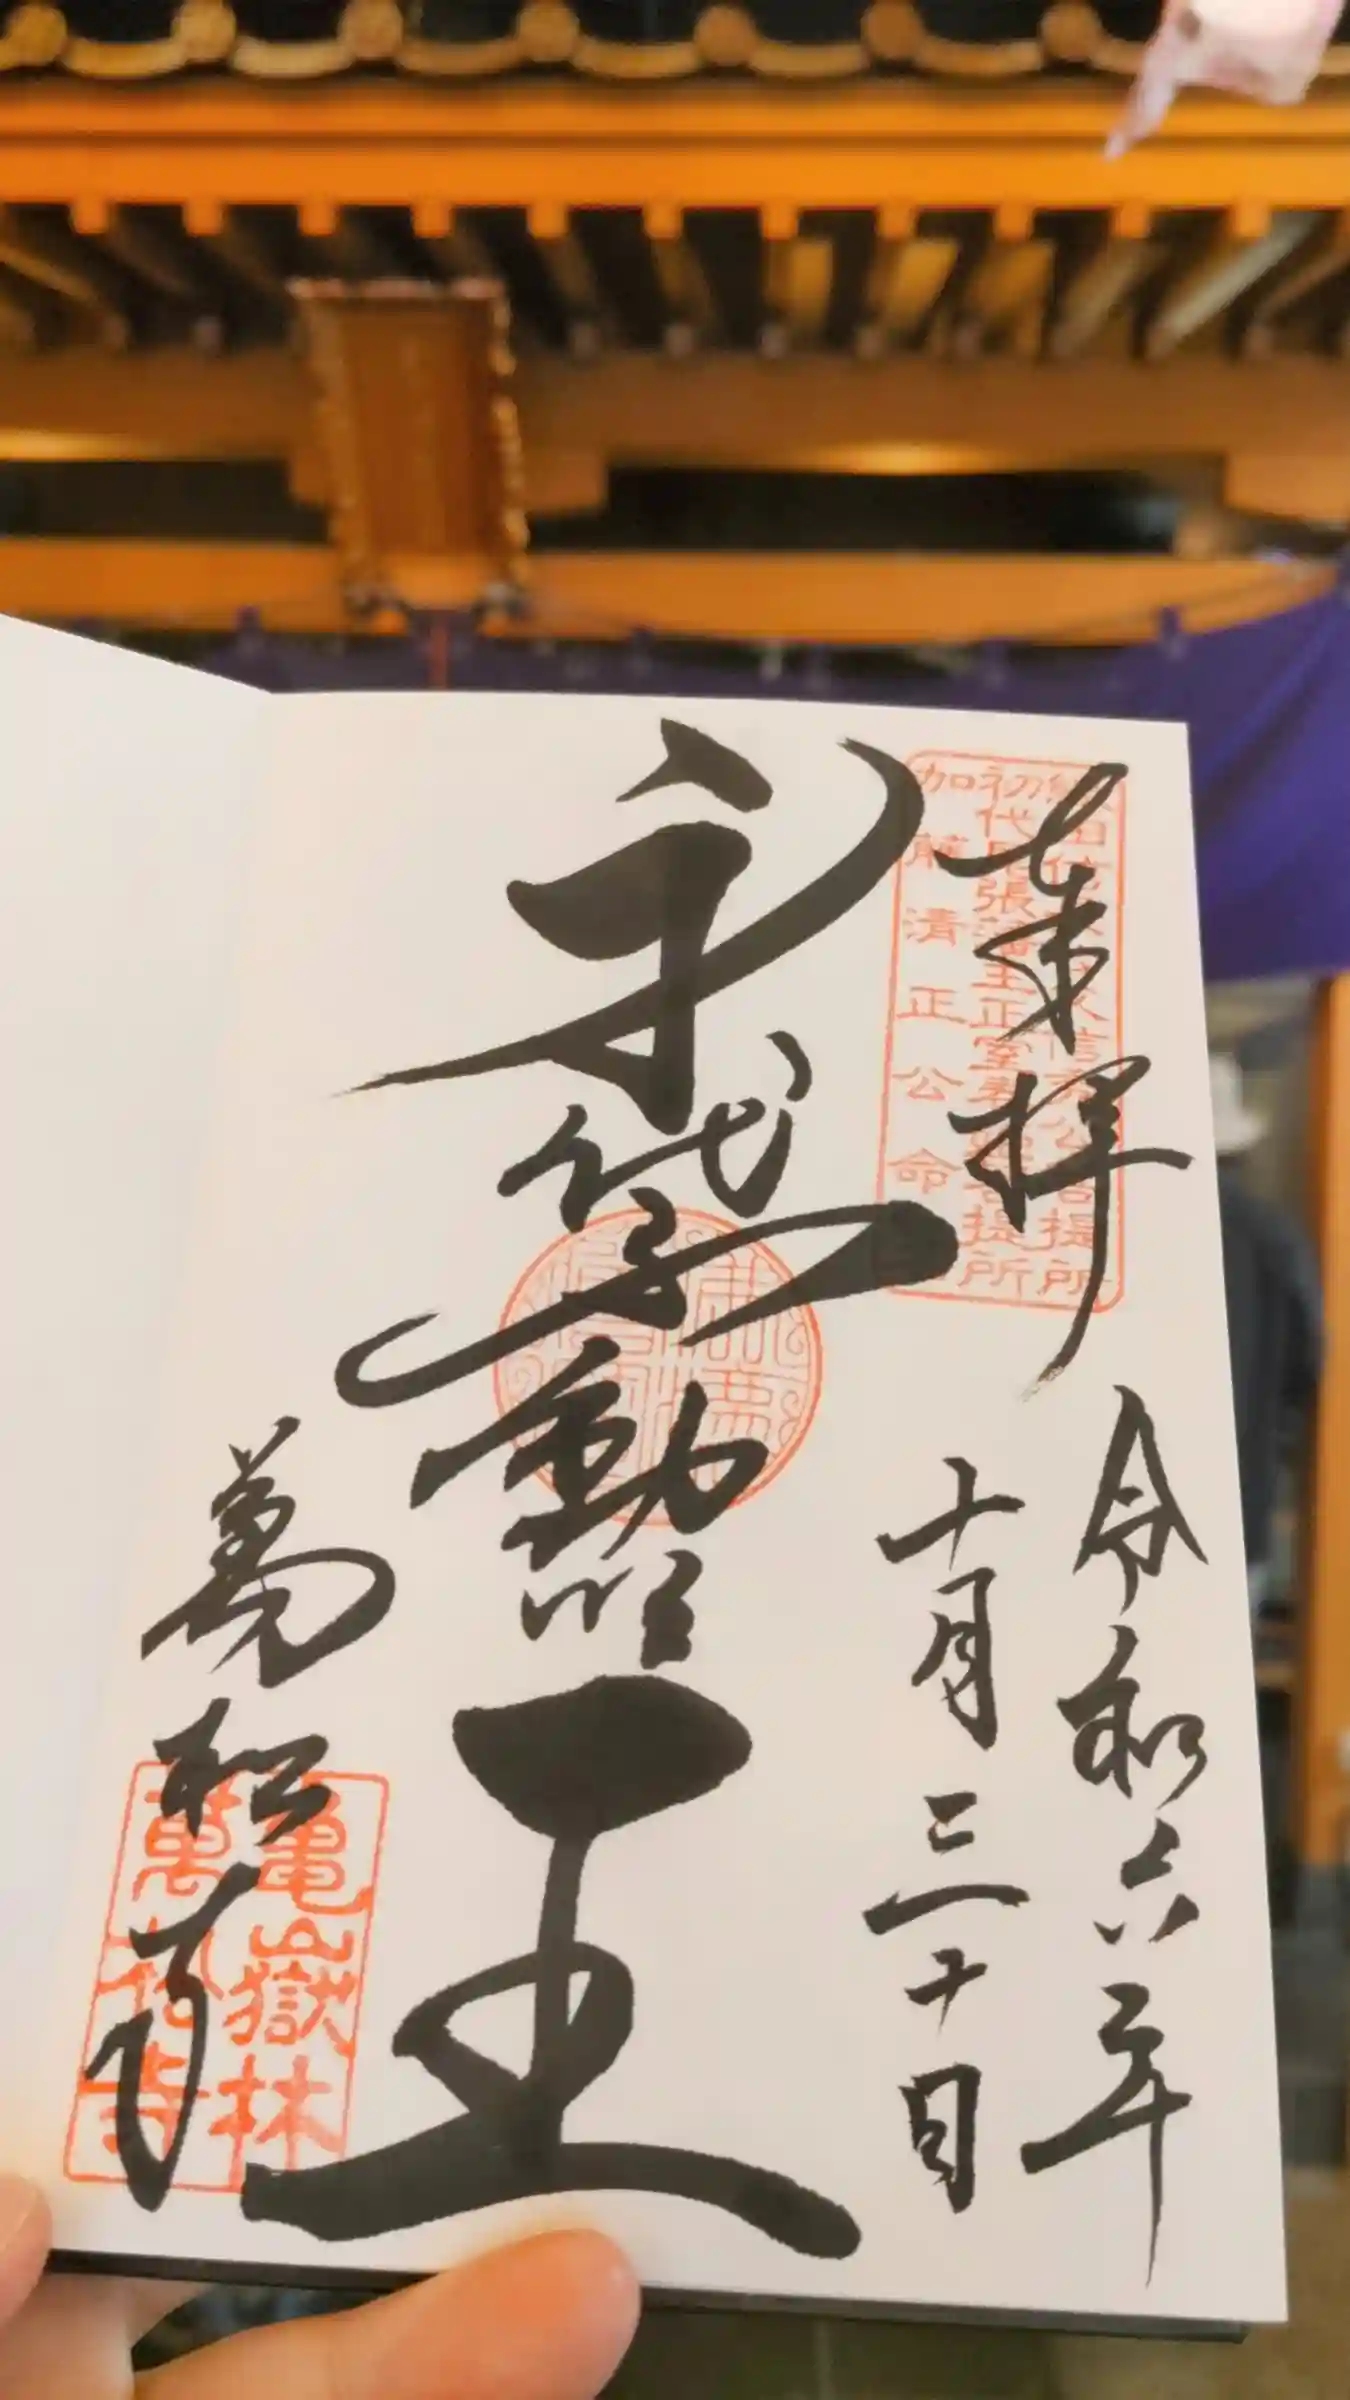 奉拝
令和六年
十月三十日
初代尾張藩主正室春姫菩提所
加藤清正公命
身代不動明王
萬松寺
龜嶽林
萬松寺